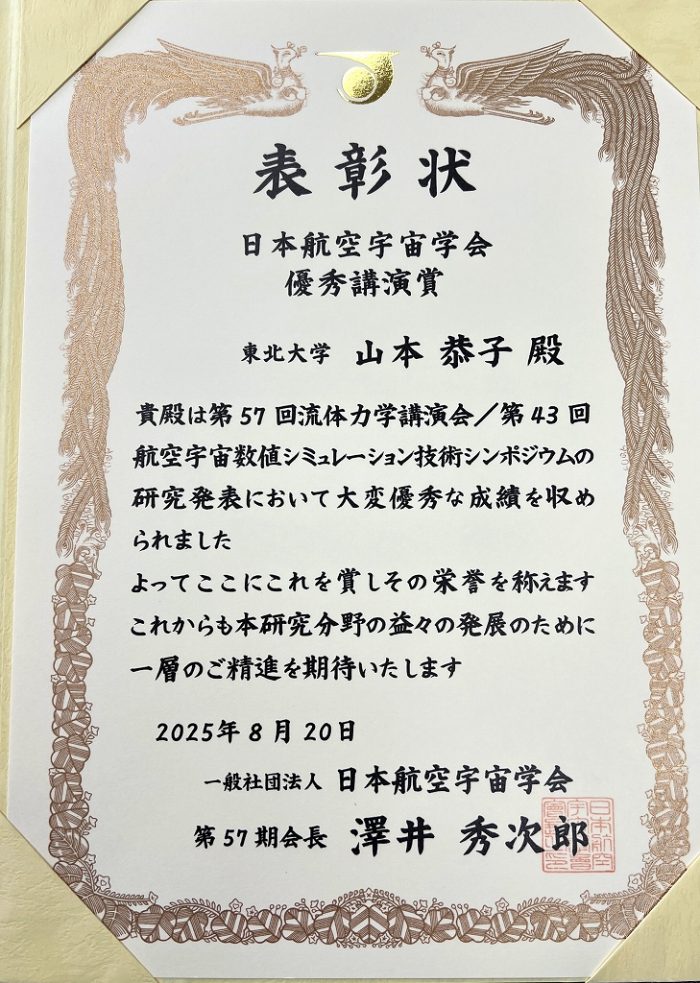 表彰状
日本航空宇宙学会
優秀講演賞
東北大学 山本 恭子 殿
貴殿は第57回流体力学講演会／第43回
航空宇宙数値シミュレーション技術シンポジウムの
研究発表において大変優秀な成績を収め
られました
よってここにこれを賞しその栄誉を称えます
これからも本研究分野の益々の発展のために
一層のご精進を期待いたします
2025年8月20日
一般社団法人 日本航空宇宙学会
第57期会長 澤井 秀次郎